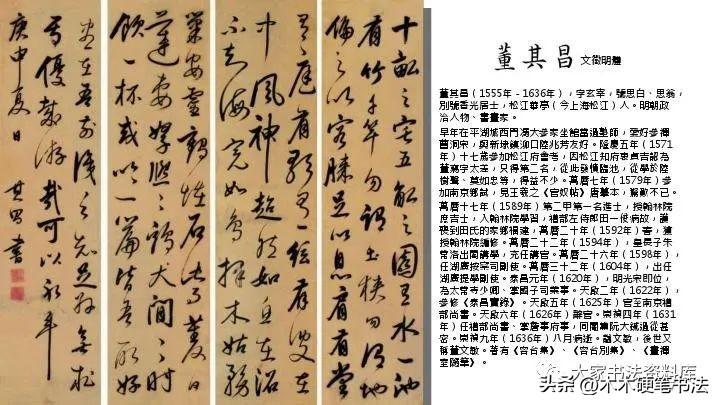 十畝之宅五畝之園有水一池
有竹千竿勿謂土狹勿謂地
偏足以容膝足以息肩有堂
有庭有歌有絃有叟在
中風神超然如且在沼
不知海寬如鳥擇木姑務
巢安靈鶴怪石紫菱白
蓮妻孥熙熙雞犬閒閒時
飲一杯或吟一篇皆吾所好
盡在吾前識分知足外無求
焉優哉游哉可以永年
庚申夏日
其昌書
董其昌 文徵明體
董其昌（1555年-1636年），字玄宰，號思白、思翁，
別號香光居士，松江華亭（今上海松江）人。明朝政
治人物、書畫家。
早年在平湖城西門馮大參家坐館當過塾師，愛好參禪
曹洞宗，與新埭鎮泖口陸兆芳友好。隆慶五年（1571
年）十七歲參加松江府會考，因松江知府衷貞吉認為
董寫字太差，只得第二名，從此發憤臨池，從學於陸
樹聲、莫如忠等，得益不少。萬曆七年（1579年）參
加南京鄉試，見王羲之《官奴帖》唐摹本，驚歎不已。
萬曆十七年（1589年）第二甲第一名進士，授翰林院
庶吉士，入翰林院學習，禮部左侍郎田一儁病故，護
喪到田氏的家鄉福建，萬曆二十年（1592年）春，獲
授翰林院編修。萬曆二十二年（1594年），皇長子朱
常洛出閣講學，充任講官。萬曆二十六年（1598年），
任湖廣按察司副使。萬曆三十二年（1604年），出任
湖廣提學副使。泰昌元年（1620年），明光宗即位，
為太常寺少卿、掌國子司業事。天啟二年（1622年），
參修《泰昌實錄》。天啟五年（1625年）官至南京禮
部尚書。天啟六年（1626年）辭官。崇禎四年（1631
年）任禮部尚書、掌詹事府事，同閹黨阮大鋮過從甚
密。崇禎九年（1636年）八月病逝。諡文敏，後世又
稱董文敏。著有《容台集》、《容台別集》、《畫禪
室隨筆》。
大家书法资料库
头条 @木木硬笔书法